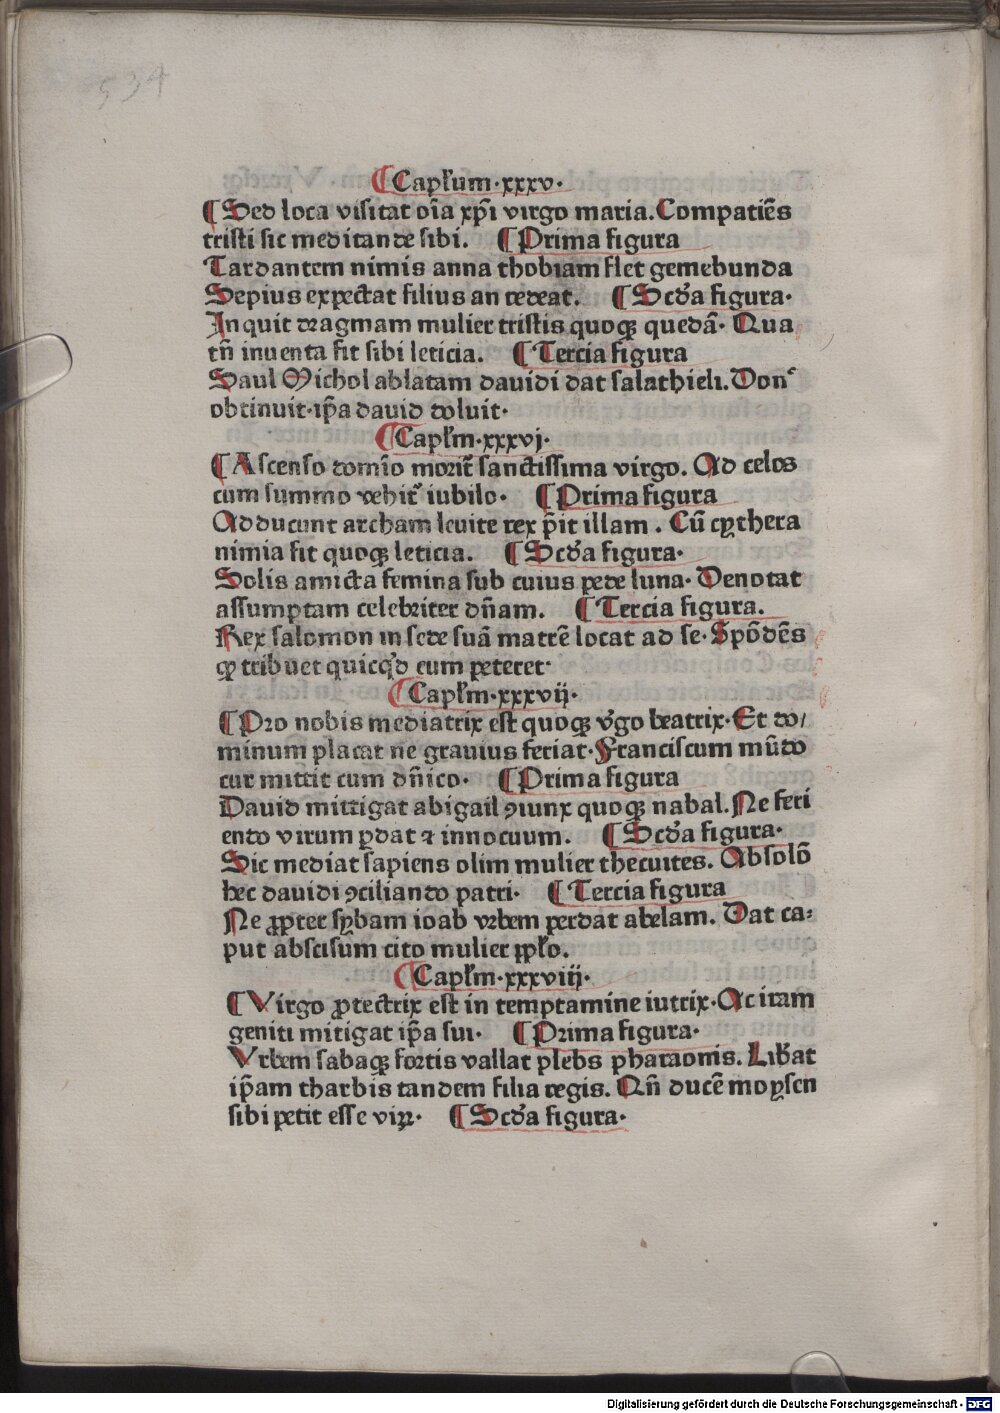 534
¶Capl̃um·xxxv·
¶Sed loca visitat oĩa xp̃i virgo maria. Compatiẽs
tristi sic meditande sibi. ¶Prima figura
Tardantem nimis anna thobiam flet gemebunda
Sepius expectat filius an redeat. ¶Scđa figura·
Inquit dragmam mulier tristis quoqꝫ quedã· Qua
tñ inuenta fit sibi leticia. ¶Tercia figura
Saul Michol ablatam dauidi dat salathieli. Donᶜ
obtinuit·ip̃a dauid doluit·
¶Capl̃m·xxxvj·
¶Ascenso domĩo morit᷑ sanctissima virgo. Ad celos
cum summo vehit᷑ iubilo· ¶Prima figura
Adducunt archam leuite rex p̃it illam. Cũ cythera
nimia fit quoqꝫ leticia. ¶Scđa figura·
Solis amicta femina sub cuius pede luna· Denotat
assumptam celebriter dñam. ¶Tercia figura.
Rex salomon in sede suã matrẽ locat ad se· Spõdẽs
ꝙ tribuet quicqͥd eum peteret·
¶Capl̃m·xxxvij·
¶Pro nobis mediatrix est quoqꝫ v̾go beatrix· Et do/
minum placat ne grauius feriat· Franciscum mũdo
cur mittit cum dñico· ¶Prima figura
Dauid mittigat abigail ꝯiunx quoqꝫ nabal. Ne feri
endo virum ꝑdat ⁊ innocuum. ¶Scđa figura·
Sic mediat sapiens olim mulier thecuites. Absolõ
hec dauidi ꝯciliando patri· ¶Tercia figura
Ne ꝓpter sybam ioab vrbem perdat abelam. Dat ca⸗
put abscisum cito mulier pp̃lo.
¶Capl̃m·xxxviij·
¶Virgo ꝓtectrix est in temptamine iutrix· Ac iram
geniti mitigat ip̃a sui· ¶Prima figura·
Vrbem sabaqꝫ fortis vallat plebs pharaonis. Lib̾at
ip̃am tharbis tandem filia regis. Qñ ducẽ moysen
sibi petit esse viꝝ· ¶Scđa figura·
Digitalisierung gefördert durch die Deutsche Forschungsgemeinschaft - DFG